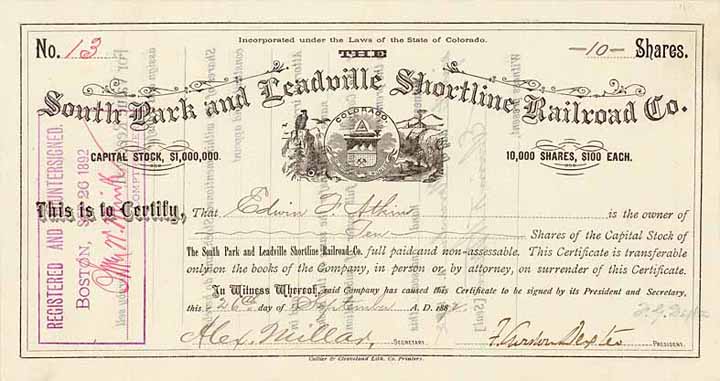 Incorporated under the Laws of the State of Colorado.
No. 13
THE
—10— Shares.
South Park and Leadville Shortline Railroad Co.
COLORADO
CAPITAL STOCK, $1,000,000.
10,000 SHARES, $100 EACH.
This is to Certify, That Edwin F. Atkins is the owner of
Ten Shares of the Capital Stock of
The South Park and Leadville Shortline Railroad Co. full paid and non-assessable. This Certificate is transferable
only on the books of the Company, in person or by attorney, on surrender of this Certificate.
In Witness Whereof, said Company has caused this Certificate to be signed by its President and Secretary,
this 26th day of September A. D. 188
Alex. Millar, SECRETARY.
PRESIDENT.
Collier & Cleaveland Lith. Co. Printers.
REGISTERED AND COUNTERSIGNED.
BOSTON, 26 1892